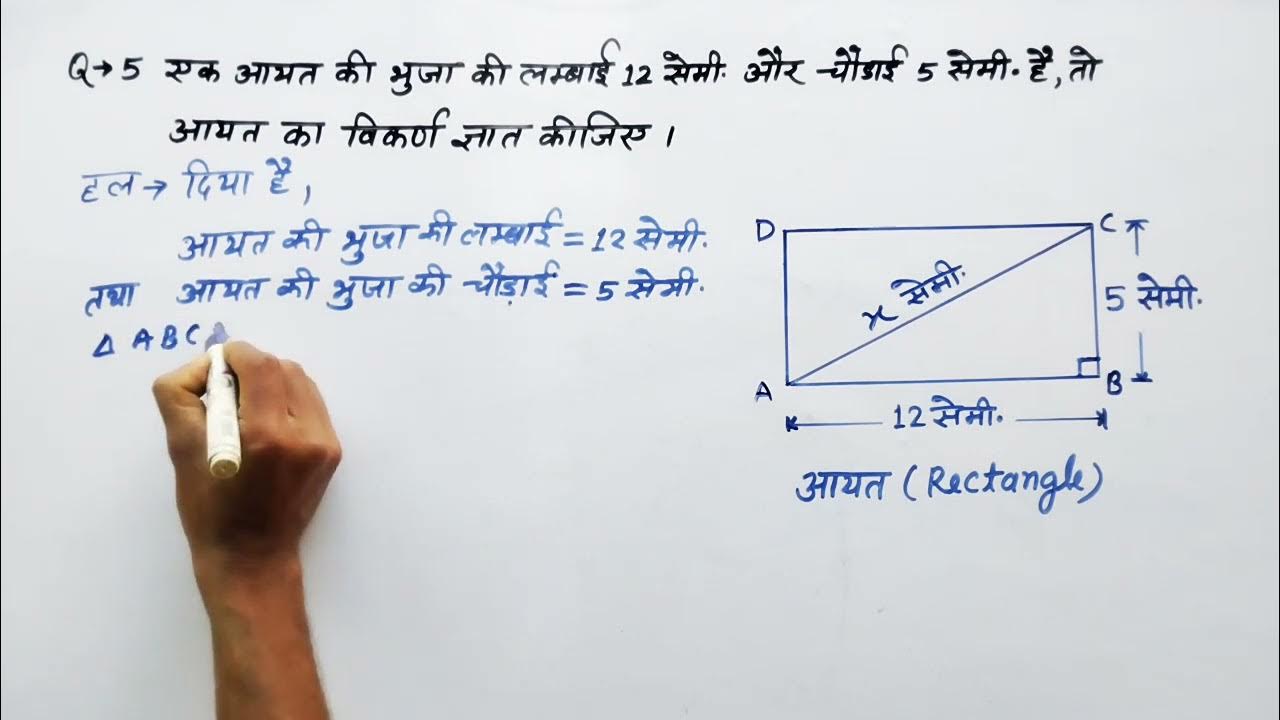 Q→5 एक आयत की भुजा की लम्बाई 12 सेमी. और चौडाई 5 सेमी. है, तो
आयत का विकर्ण ज्ञात कीजिए ।
हल → दिया है,
आयत की भुजा की लम्बाई = 12 सेमी.
तथा आयत की भुजा की चौड़ाई = 5 सेमी.
Δ ABC
D
C
x सेमी.
5 सेमी.
A
B
12 सेमी.
आयत (Rectangle)